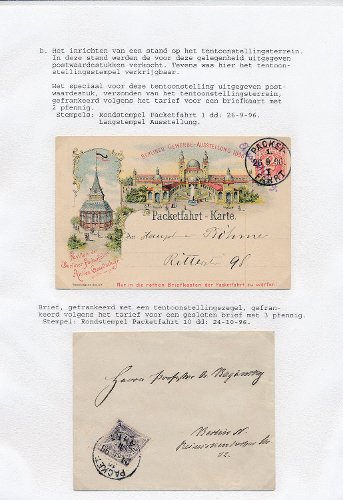 b. Het inrichten van een stand op het tentoonstellingsterrein.
In deze stand werden de voor deze gelegenheid uitgegeven
postwaardestukken verkocht. Tevens was hier het tentoon-
stellingsstempel verkrijgbaar.
Het speciaal voor deze tentoonstelling uitgegeven post-
waardestuk, verzonden van het tentoonstellingsterrein,
gefrankeerd volgens het tarief voor een briefkaart met
2 pfennig.
Stempels: Rondstempel Packetfahrt 1 dd: 26-9-96.
Langstempel Ausstellung.
BERLINER GEWERBE-AUSSTELLUNG 1896
PACKET
1
26 9 96
FAHRT
Packetfahrt-Karte.
Böhme
Ritterstr. 98
Nur in die rothen Briefkasten der Packetfahrt zu werfen.
Brief, gefrankeerd met een tentoonstellingszegel, gefran-
keerd volgens het tarief voor een gesloten brief met 3 pfennig.
Stempel: Rondstempel Packetfahrt 10 dd: 24-10-96.
Herrn Professor
PACKET
Berlin W.